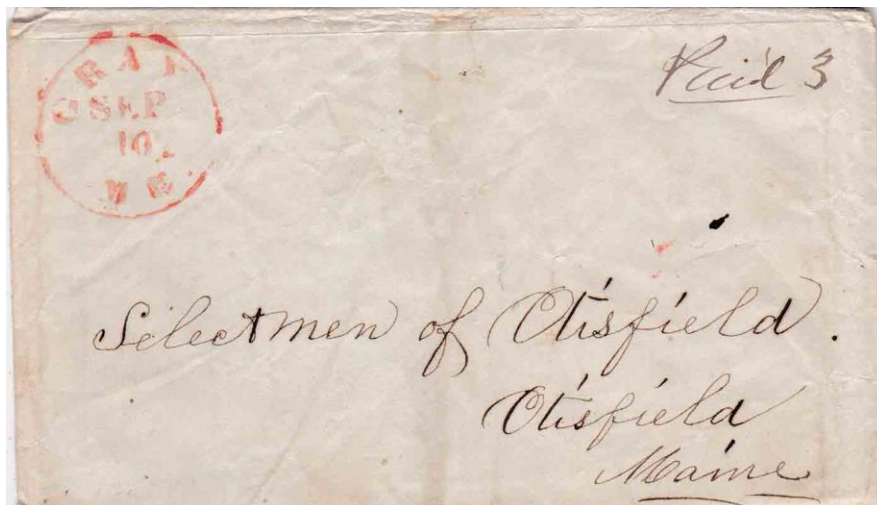 GRAY
SEP
10
ME.
Paid 3
Selectmen of Otisfield.
Otisfield
Maine